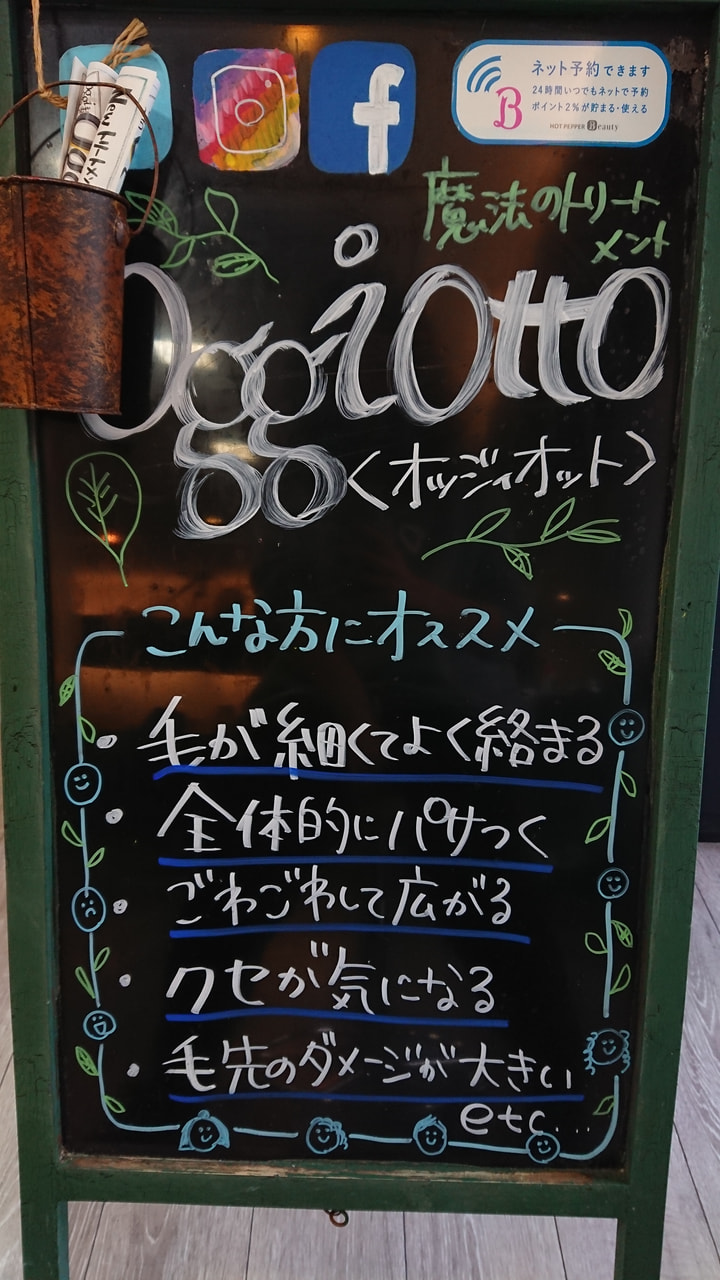 ネット予約できます
24時間いつでもネットで予約
ポイント2%が貯まる・使える
HOT PEPPER Beauty
New トリートメン
魔法のトリート
メント
Oggiotto
<オッジィオット>
こんな方にオススメ
・毛が細くてよく絡まる
・全体的にパサつく
・ごわごわして広がる
・クセが気になる
・毛先のダメージが大きい
etc...